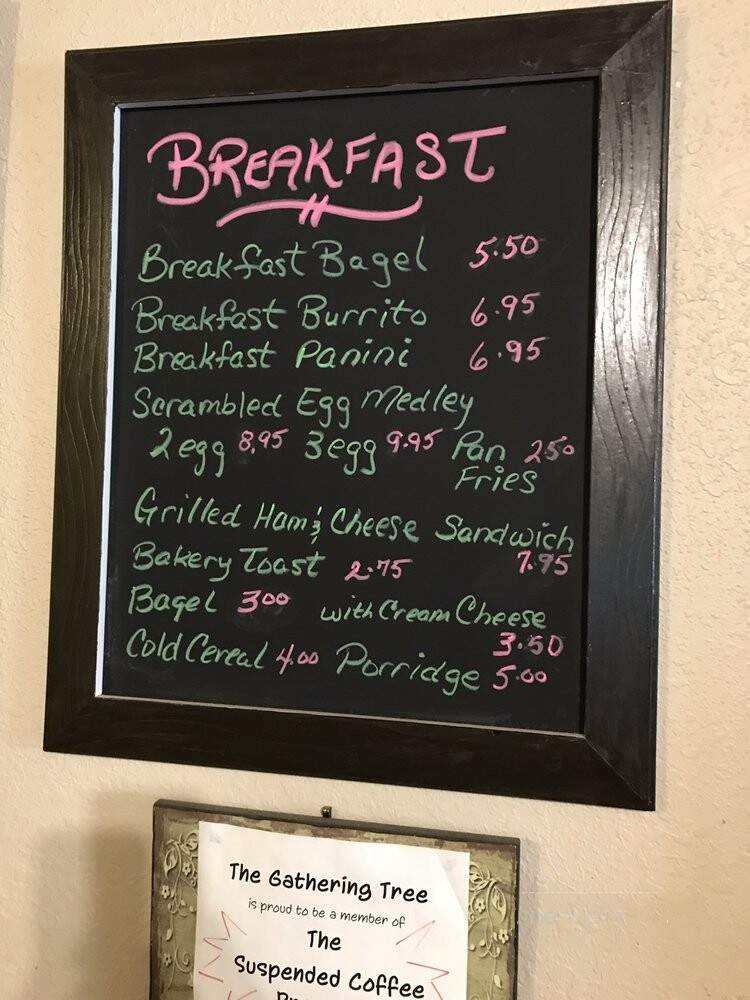 BREAKFAST
Breakfast Bagel 5.50
Breakfast Burrito 6.95
Breakfast Panini 6.95
Scrambled Egg Medley
2 egg 8.95 3 egg 9.95 Pan 2.50
Fries
Grilled Ham & Cheese Sandwich
Bakery Toast 2.75 7.95
Bagel 3.00 with Cream Cheese
3.50
Cold Cereal 4.00 Porridge 5.00
The Gathering Tree
is proud to be a member of
The
Suspended Coffee